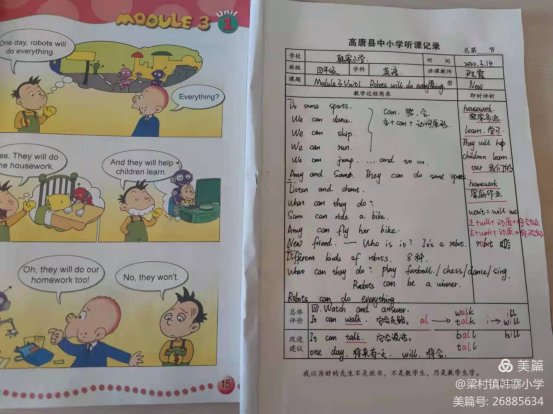 MODULE 3 Unit 1
One day, robots will
do everything.
Everything?
They will do
the housework.
And they will help
children learn.
Oh, they will do our
homework too!
No, they won't.
15
高唐县中小学听课记录
总第 节
学校
时间
班级 四年级 学科 英语 讲课教师
课题 Module 3 Unit 1 Robots will do everything 课型 New
教学过程简录 即时评价
Do some sports.
We can dance.
We can skip.
We can run.
We can jump. ... and so on.
Amy and Sam. They can do some sports
Listen and chant.
What can they do?
Sam can ride a bike.
Amy can fly her bike.
New friend. — Who is it? It's a robot.
Different kinds of robots. 8种.
What can they do? play football / chess / dance / sing.
Robots can be a winner.
Robots can do everything.
can. 能, 会
主+can+动词原形
housework
learn. 学习
They will help
children learn.
our 我们的
homework
家庭作业
won't = will not
robot
总体
评价
改进
建议
Watch and answer.
It can walk.
It can talk.
one day. 将来有一天. will. 将会.
al
walk
talk
ball
tall
i
ill
will
hill
我以为好的先生不是教书,不是教学生,乃是教学生学。
美篇
@梁村镇韩寨小学
美篇号: 26885634